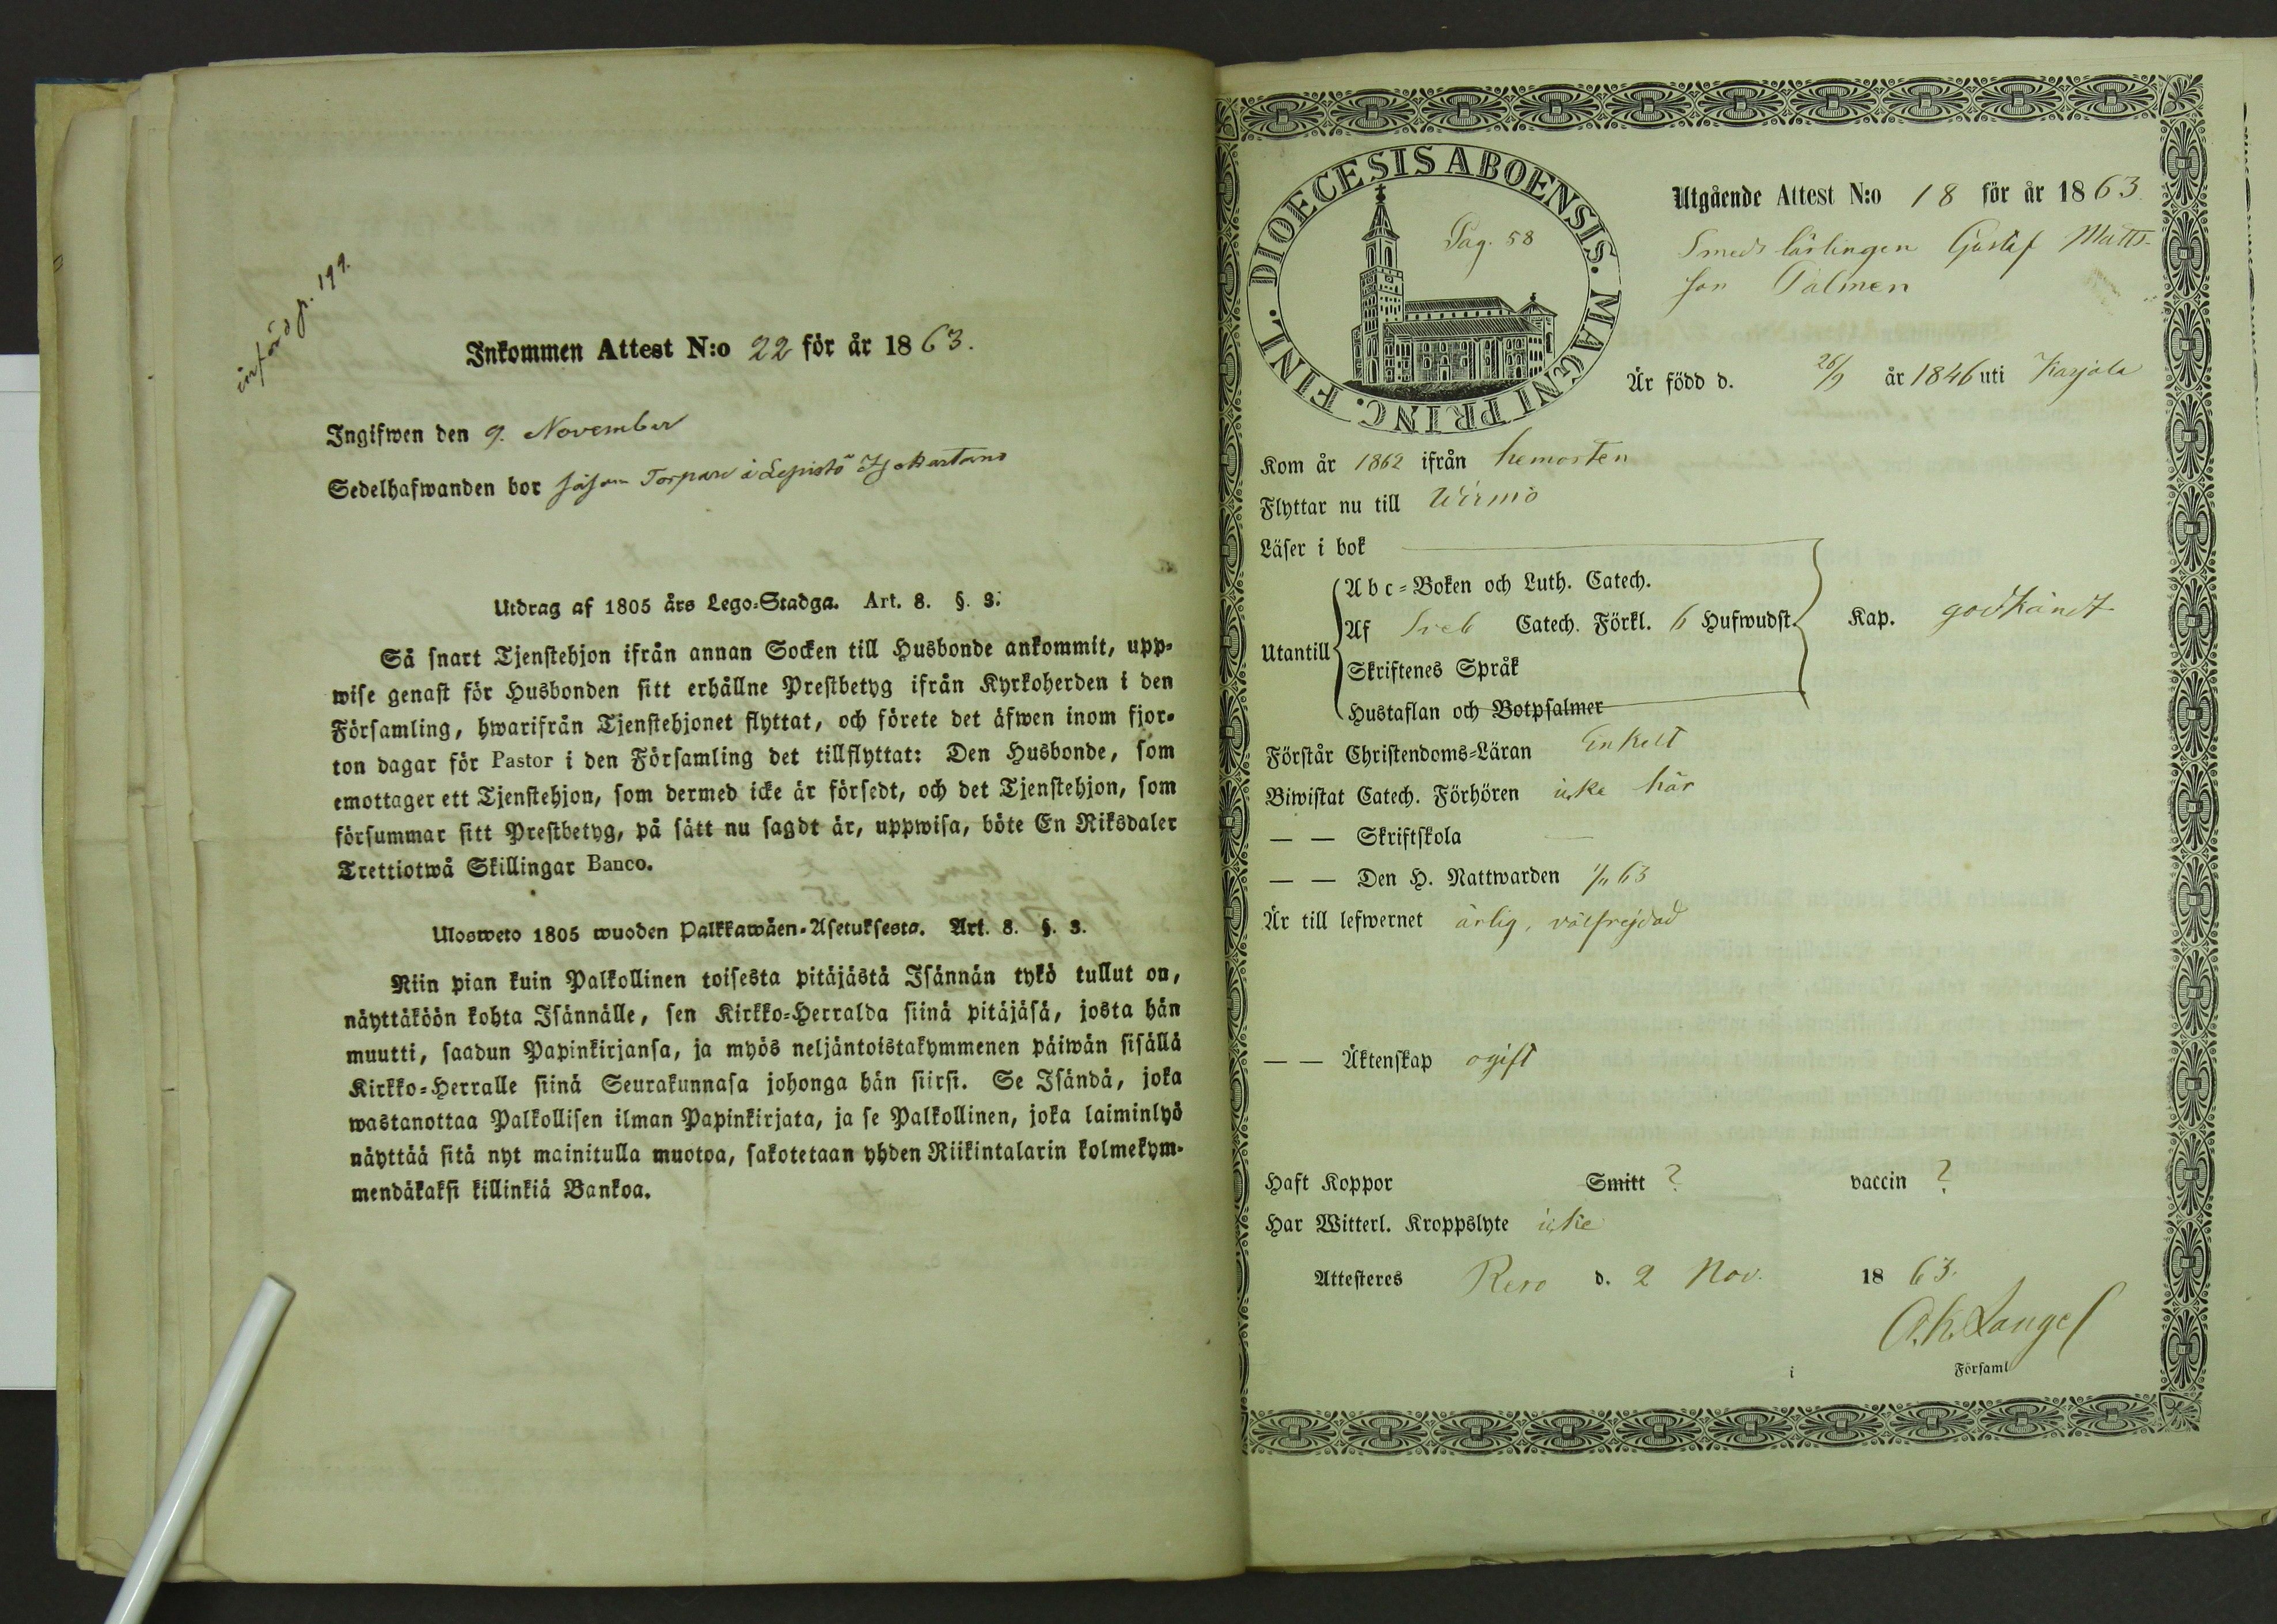 införd p. 199.
Inkommen Attest N:o 22 för år 1863.
Ingifwen den 9. November
Sedelhafwanden bor såsom Torpare å Lepistö
Utdrag af 1805 års Lego-Stadga. Art. 8. §. 3.
Så snart Tjenstehjon ifrån annan Socken till Husbonde ankommit, upp-
wise genast för Husbonden sitt erhållne Prestbetyg ifrån Kyrkoherden i den
Församling, hwarifrån Tjenstehjonet flyttat, och förete det äfwen inom fjor-
ton dagar för Pastor i den Församling det tillflyttat: Den Husbonde, som
emottager ett Tjenstehjon, som dermed icke är försedt, och det Tjenstehjon, som
försummar sitt Prestbetyg, på sätt nu sagdt är, uppwisa, böte En Riksdaler
Trettiotwå Skillingar Banco.
Ulosweto 1805 wuoden Palkkawäen-Asetuksesta. Art. 8. §. 3.
Niin pian kuin Palkollinen toisesta pitäjästä Isännän tykö tullut on,
näyttäköön kohta Isännälle, sen Kirkko-Herralda siinä pitäjäsä, josta hän
muutti, saadun Papinkirjansa, ja myös neljäntoistakymmenen päiwän sisällä
Kirkko-Herralle siinä Seurakunnasa johonga hän siirsi. Se Isändä, joka
wastanottaa Palkollisen ilman Papinkirjata, ja se Palkollinen, joka laiminlyö
näyttää sitä nyt mainitulla muotoa, sakotetaan yhden Riikintalarin kolmekym-
mendäkaksi killinkiä Bankoa.
DIOECESIS ABOENSIS. MAGNI PRINC. FINL.
Pag. 58
Utgående Attest N:o 18 för år 1863.
Smedslärlingen Gustaf Matts-
son Palmen
Är född d. 26/9 år 1846 uti Karjala
Kom år 1862 ifrån hemorten
Flyttar nu till Wirmo
Läser i bok
Utantill
Abc-Boken och Luth. Catech.
Af Sveb Catech. Förkl. 6 Hufwudst.
Skriftenes Språk
Hustaflan och Botpsalmer
Kap. godkändt
Förstår Christendoms-Läran Enkelt
Biwistat Catech. Förhören icke här
— — Skriftskola —
— — Den H. Nattwarden 1/11 63
Är till lefwernet ärlig, välfrejdad
— — Äktenskap ogift
Haft Koppor Smitt ? vaccin ?
Har Witterl. Kroppslyte icke
Attesteres Reso d. 2 Nov. 1863.
A. K. Laugel
i Församl